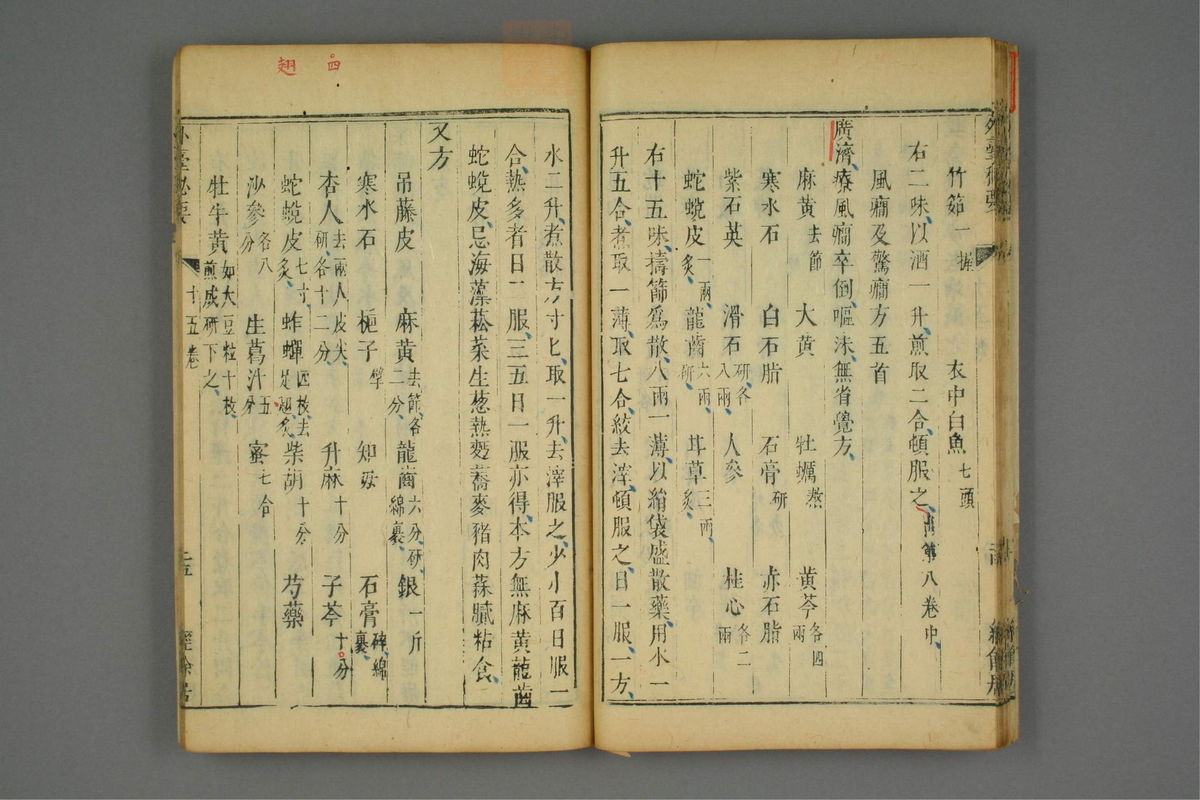 竹筎一握 衣中白魚七頭
右二味、以酒一升、煎取二合、頓服之、出第八卷中、
風癇及驚癇方五首
廣濟、療風癇卒倒、嘔沫、無省覺方、
麻黃去節 大黃 牡蠣熬 黃芩各四兩
寒水石 白石脂 石膏研 赤石脂
紫石英 滑石研、各八兩、 人參 桂心各二兩
蛇蛻皮一兩、炙、 龍齒六兩、研、 甘草三兩、炙、
右十五味、擣篩爲散、八兩一薄、以絹袋盛散藥、用水一
升五合、煮取一薄、取七合、絞去滓、頓服之、日一服、一方、
四
翅
水二升、煮散方寸匕、取一升、去滓服之、少小百日服一
合、熱多者日二服、三五日一服亦得、本方無麻黃龍齒
蛇蛻皮、忌海藻菘菜生葱熱麪蕎麥豬肉蒜膩粘食、
又方
吊藤皮 麻黃去節、各二分、 龍齒六分、研、綿裹、 銀一斤
寒水石 梔子擘 知毋 石膏碎、綿裹、
杏人去兩人皮尖、研、各十二分、 升麻十分 子芩十分
蛇蛻皮七寸、炙、 蚱蟬四枚、去足翅、炙、 柴胡十分 芍藥
沙參各八分 生葛汁五分 蜜七合
牡牛黃如大豆粒十枚、煎成研下之、
十五卷